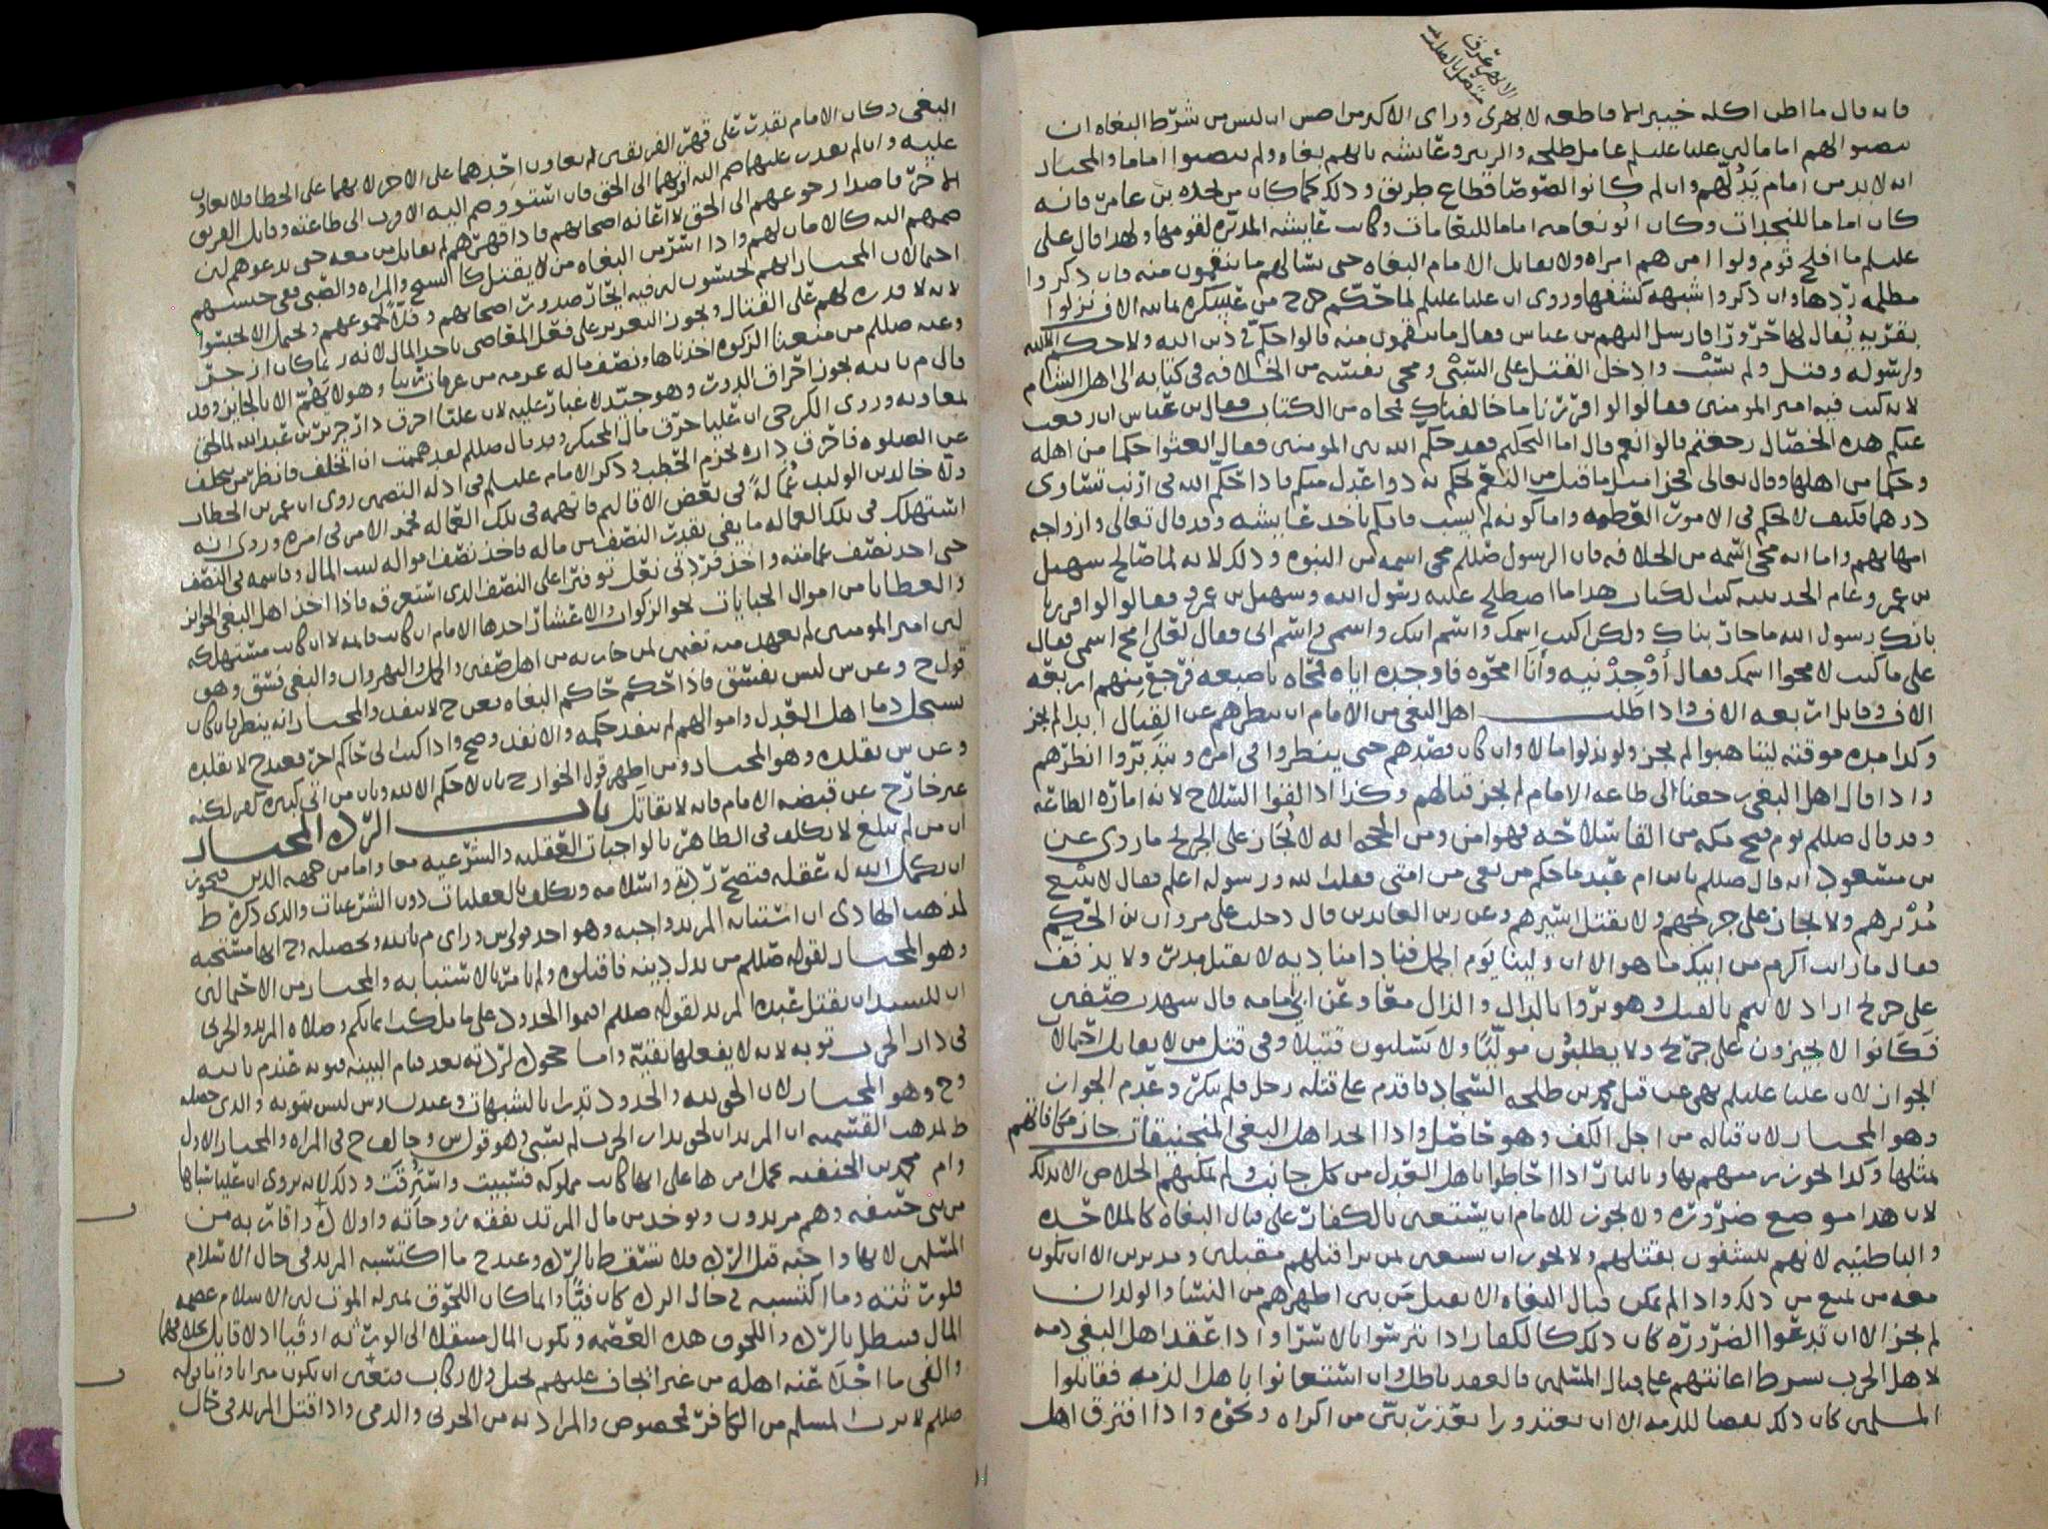 الابهر عرق
متصل بالقلب
فانه قال ما اطن اكله خيبر انما قاطعه لابهرى وراى الاكثر من اصحابنا ان ليس من شرط البغاه ان
ينصبوا لهم اماما لان عليا عليلم عامل طلحه والزبير وعايشه بانهم بغاه ولم ينصبوا اماما والمختار
انه لا بد من امام يَدُلّهم وان لم كانوا لصوصا قطاع طريق وذلك كما كان من نجده بن عامر فانه
كان اماما للنجدات وكان ابو نعامه اماما للنعامات وكانت عايشه المدبّره لقومها ولهذا قال على
عليلم ما افلح قوم ولوا امرهم امراه ولا يقاتل الامام البغاه حتى يسالهم ما ينقمون منه فان ذكروا
مظلمه ردها وان ذكروا شبهه كشفها وروى ان عليا عليلم لما حكّم خرج من عسكره ثمانيه الاف نزلوا
بقريه يُقال لها حَرَورَا فارسل اليهم بن عباس فقال ما تنقمون منه قالوا حكّم فى دين الله ولا حكم الا لله
ولرسوله وقتل ولم يسْب وادخل القتل على السّبْى ومحى نفسه من الخلافه فى كتابه الى اهل الشام
لانه كتب فيه امير المومنين فقالوا لو اقررنا ما خالفناك فمحاه من الكتاب فقال بن عباس ان رفعت
عنكم هذه الخصال رجعتم قالوا نعم قال اما التحكيم فقد حكم الله بين المومنين فقال ابعثوا حكما من اهله
وحكما من اهلها وقال تعالى فجزا مثل ما قتل من النعم يحكم به ذوا عدل منكم فاذا حكّم الله فى ارنب تساوى
درهما فكيف لا يحكم فى الامور العظيمه واما كونه لم يسب فايكم ياخذ عايشه وقد قال تعالى وازواجه
امهاتهم واما انه محى اسمه من الخلافه فان الرسول صللم محى اسمه من النبوه وذلك لانه لما صالح سهيل
بن عمرو عام الحديبيه كتب الكتاب هذا ما اصطلح عليه رسول الله وسهيل بن عمرو فقالوا لو اقررنا
بانك رسول الله ما حاربناك ولكن اكتب اسمك واسم ابيك واسمى واسم ابى فقال لعلى امح اسمى فقال
على ما كنت لا محوا اسمك فقال أَوْجِدْنيه وأنا امحوه فاوجده اياه فمحاه باصبعه فرجع منهم اربعه
الاف وقاتل اربعه الاف واذا طلب اهل البغى من الامام ان ينظرهم عن القتال ابدا لم يجز
وكذا مده موقته ليتاهبوا لم يجز ولو بذلوا مالا وان كان قصدهم حتى ينظروا فى امره ويتدبّروا انظرهم
واذا قال اهل البغى رجعنا الى طاعه الامام لم يجز قتالهم وكذا اذا القوا السلاح لانه اماره الطاعه
وقد قال صللم يوم فتح مكه من القا سلاحه فهو امن ومن الحجه انه لا يُجَاز على الجريح ما روى عن
بن مسعود انه قال صللم يا بن ام عبد ما حكم من بغى من امتى فقلت الله ورسوله اعلم فقال لا يتبع
مُدْبرهم ولا يجاز على جريحهم ولا يقتل اسيرهم وعن زين العابدين قال دخلت على مروان بن الحكم
فقال ما رايت اكرم من ابيك ما هو الا ان ولينا يَوم الجمل فنادا مناديه لا يقتل مدبر ولا يذفّف
على جريح اراد لا يتمم بالقتل وهو يروا بالدال والذال معا وعَن ابى امامه قال شهدت صفين
فَكَانوا لا يجيزون على جريح ولا يطلبُون مولّيًا ولا يَسْلبون قتيلا وفى قتل من لا يقاتل احتمالان
الجواز لان عليا عليلم نهى عن قتل محمد بن طلحه السّجاد فاقدم على قتله رجل فلم ينكر وعَدم الجواز
وهو المختار لان قتاله من اجل الكف وهو حاصل واذا اتخذ اهل البغى المنجنيقات جاز مكافاتهم
بمثلها وكذا يجوز رميهم بها وبالنار اذا احاطوا باهل العدل من كل جانب ولم يمكنهم الخلاص الا بذلك
لان هذا موضع ضروره ولا يجوز للامام ان يستعين بالكفار على قتال البغاه كالملاحده
والباطنيه لانهم يستشفون بقتلهم ولا يجوز ان يستعين بمن يرا قتلهم مقبلين ومدبرين الا ان يكون
معه من يمنع من ذلك واذا لم يمكن قتال البغاه الا بقتل مَن بين اظهرهم من النسا والولدان
لم يجز الا ان تدعوا الضروره كان ذلك كالكفار اذا تترسوا بالاسرا واذا عقد اهل البغى ذمه
لاهل الحرب بشرط اعانتهم على قتال المسلمين فالعقد باطل وان استعانوا باهل الذمه فقاتلوا
المسلمين كان ذلك نقصا للذمه الا ان يعتذروا بعذر بيّن من اكراه ونحوه واذا افترق اهل
البغى وكان الامام يقدر على قهر الفريقين لم يعاون احَدهما على الاخر لانهما على الخطا فلا يعاون
عليه وان لم يقدر عليهما ضم اليه اقربهما الى الحق فان استوو ضم اليه الاقرب الى طاعته وقاتل الفريق
الاخر قاصدا رجوعهم الى الحق لا اعانه اصحابهم فاذا قهرهم لم يقاتل من معه حتى يدعوهم لان
ضمهم اليه كالامان لهم واذا اسر من البغاه من لا يقتل كالشيخ والمراه والصبى ففى حبسهم
احتمالان المختار انهم يحبسون لان فيه ايحاز صدور اصحابهم وفلاّ لجموعهم ويحتمل الا يحبسوا
لانه لا قدره لهم على القتال ويجوز التعزير على فعل المعاصى باخذ المال لانه
وعنه صللم من منعنا الزكوه اخذناها ونصف ماله عزمه من عزمات ربنا
قال م بالله يجوز احراق الدور وهو جيّد لا غبار عليه لان عليّا احرق دار جرير بن عبد الله لما لحق
بمعاويه وروى الكرخى ان عليا حرق مال المحتكر وقد قال صللم لقد هممت ان اتخلف فانظر من تخلف
عن الصلوه فاحرق داره بحزم الحطب وذكر الامام عليلم فى ادله التضمين روى ان عمر بن الخطاب
ولا خالد بن الوليد عُمَالةً فى بعض الاقاليم فاتهمه فى تلك العماله
استهلك فى تلك العماله ما يفى بقدر النصف من ماله فاخذ نصف امواله لبيت المال وقاسمه فى النصف
حتى اخذ نصف عمامته واخذ فَردَتى نعل
والعطايا من اموال الجبايات نحو الزكوات والاعشار اخذها الامام ان كانت قائمه لا ان كانت مستهلكه
لان امير المومنين لم يعهد منه تضمين لمن حاربه من اهل صفين والجمل والنهروان والبغى فسق وهو
قول ح وعن س ليس بفسق فاذا حكم حاكم البغاه فعن ح لا ينفذ والمختار انه ينظر فان كان
يستحل دما اهل العدل واموالهم لم ينفذ حكمه والا نفذ وصح واذا كتب الى حاكم اخر فعند ح لا يقبله
وعن س يقبله وهو المختار ومن اظهر قول الخوارج بان لا حكم الا لله وبان من اتى كبيره كفر لكنه
غير خارج عن قبضه الامام فانه لا يقاتل باب الردّه المختار
ان من لم يبلغ لا يكلف فى الظاهر بالواجبات العقليه والشرعيه معا واما من جهه الدين فيجوز
ان يكمل الله له عقله فتصح ردته واسلامه ويكلف بالعقليات دون الشرعيات والذى ذكره ط
لمذهب الهادى ان استتابه المرتد واجبه وهو احد قولى س وراى م بالله وتحصيله وح انها مستحبه
وهو المختار لقوله صللم من بدل دينه فاقتلوه ولم يامر بالاستتابه والمختار من الاحتمالين
ان للسيد ان يقتل عبده المرتد لقوله صللم اقيموا الحدود على ما ملكت ايمانكم وصلاه المرتد والحربى
فى دار الحرب توبه لانه لا يفعلها تقيّه واما جحوده لردته بعد قيام البينه فتوبه عند م بالله
وح وهو المختار لان الحق لله والحدود تدرا بالشبهات وعند ن وس ليس بتوبه والذى حصله
ط لمذهب القسميه ان المرتد ان لحق بدار الحرب لم يسبى وهو قول س وخالف ح فى المراه والمختار الاول
وام محمد بن الحنفيه محمل امرها على انها كانت مملوكه فسبيت واسترقت وذلك لانه يروى ان عليا سباها
من بنى حنيفه وهم مرتدون ويوخذ من مال المرتد نفقه زوجاته واولاده واقاربه من
المسلمين لانها واجبه قبل الرده فلا تسقط بالردّه وعند ح ما اكتسبه المرتد فى حال الاسلام
فلورثته وما اكتسبه فى حال الرده كان فيئًا وانما كان اللحوق بمنزله الموت لان الاسلام عصمه
المال فيبطل بالردّه واللحوق هذه العصمه ويكون المال منتقلا الى الورثه او فيا اذ لا قايل بخلافهما
والفى ما اجْلاَ عَنه اهله من غير ايجاف عليهم بخيل ولا ركاب فتعين ان يكون ميراثا واما قوله
صللم لا يرث المسلم من الكافر فمخصوص والمراد به من الحربى والذمى واذا قتل المرتد فى حال